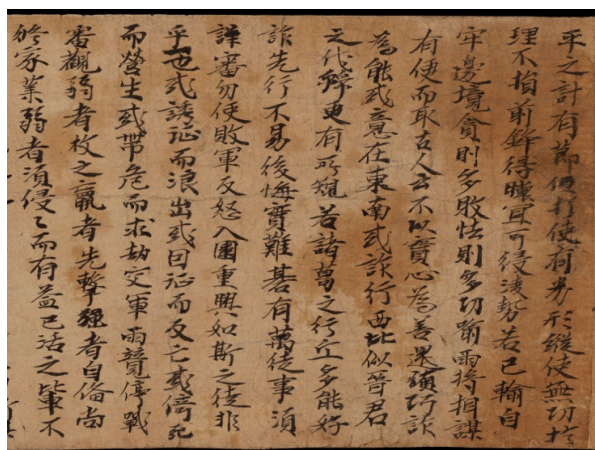 平之計有節但打使有劣形縱使無功於
理不損前鋒得軍可侵淩勢若已輸自
牢邊境貪則多敗怯則多功喻兩將相謀
有便而取古人云不以實心為善還須巧詐
為能或意在東南或詐行西北似晉君
之伐虢更有所窺若諸葛之行丘多能好
詐先行不易後悔實難碁有萬徒事須
謹審勿使敗軍反怒入圍重興如斯之徒非
乎一也或誘征而浪出或因征而反亡或倚死
而營生或帶危而求劫交軍兩競停戰
審觀弱者枚之羸者先擊強者自備尚
修家業弱者須侵々而有益已活之輩不